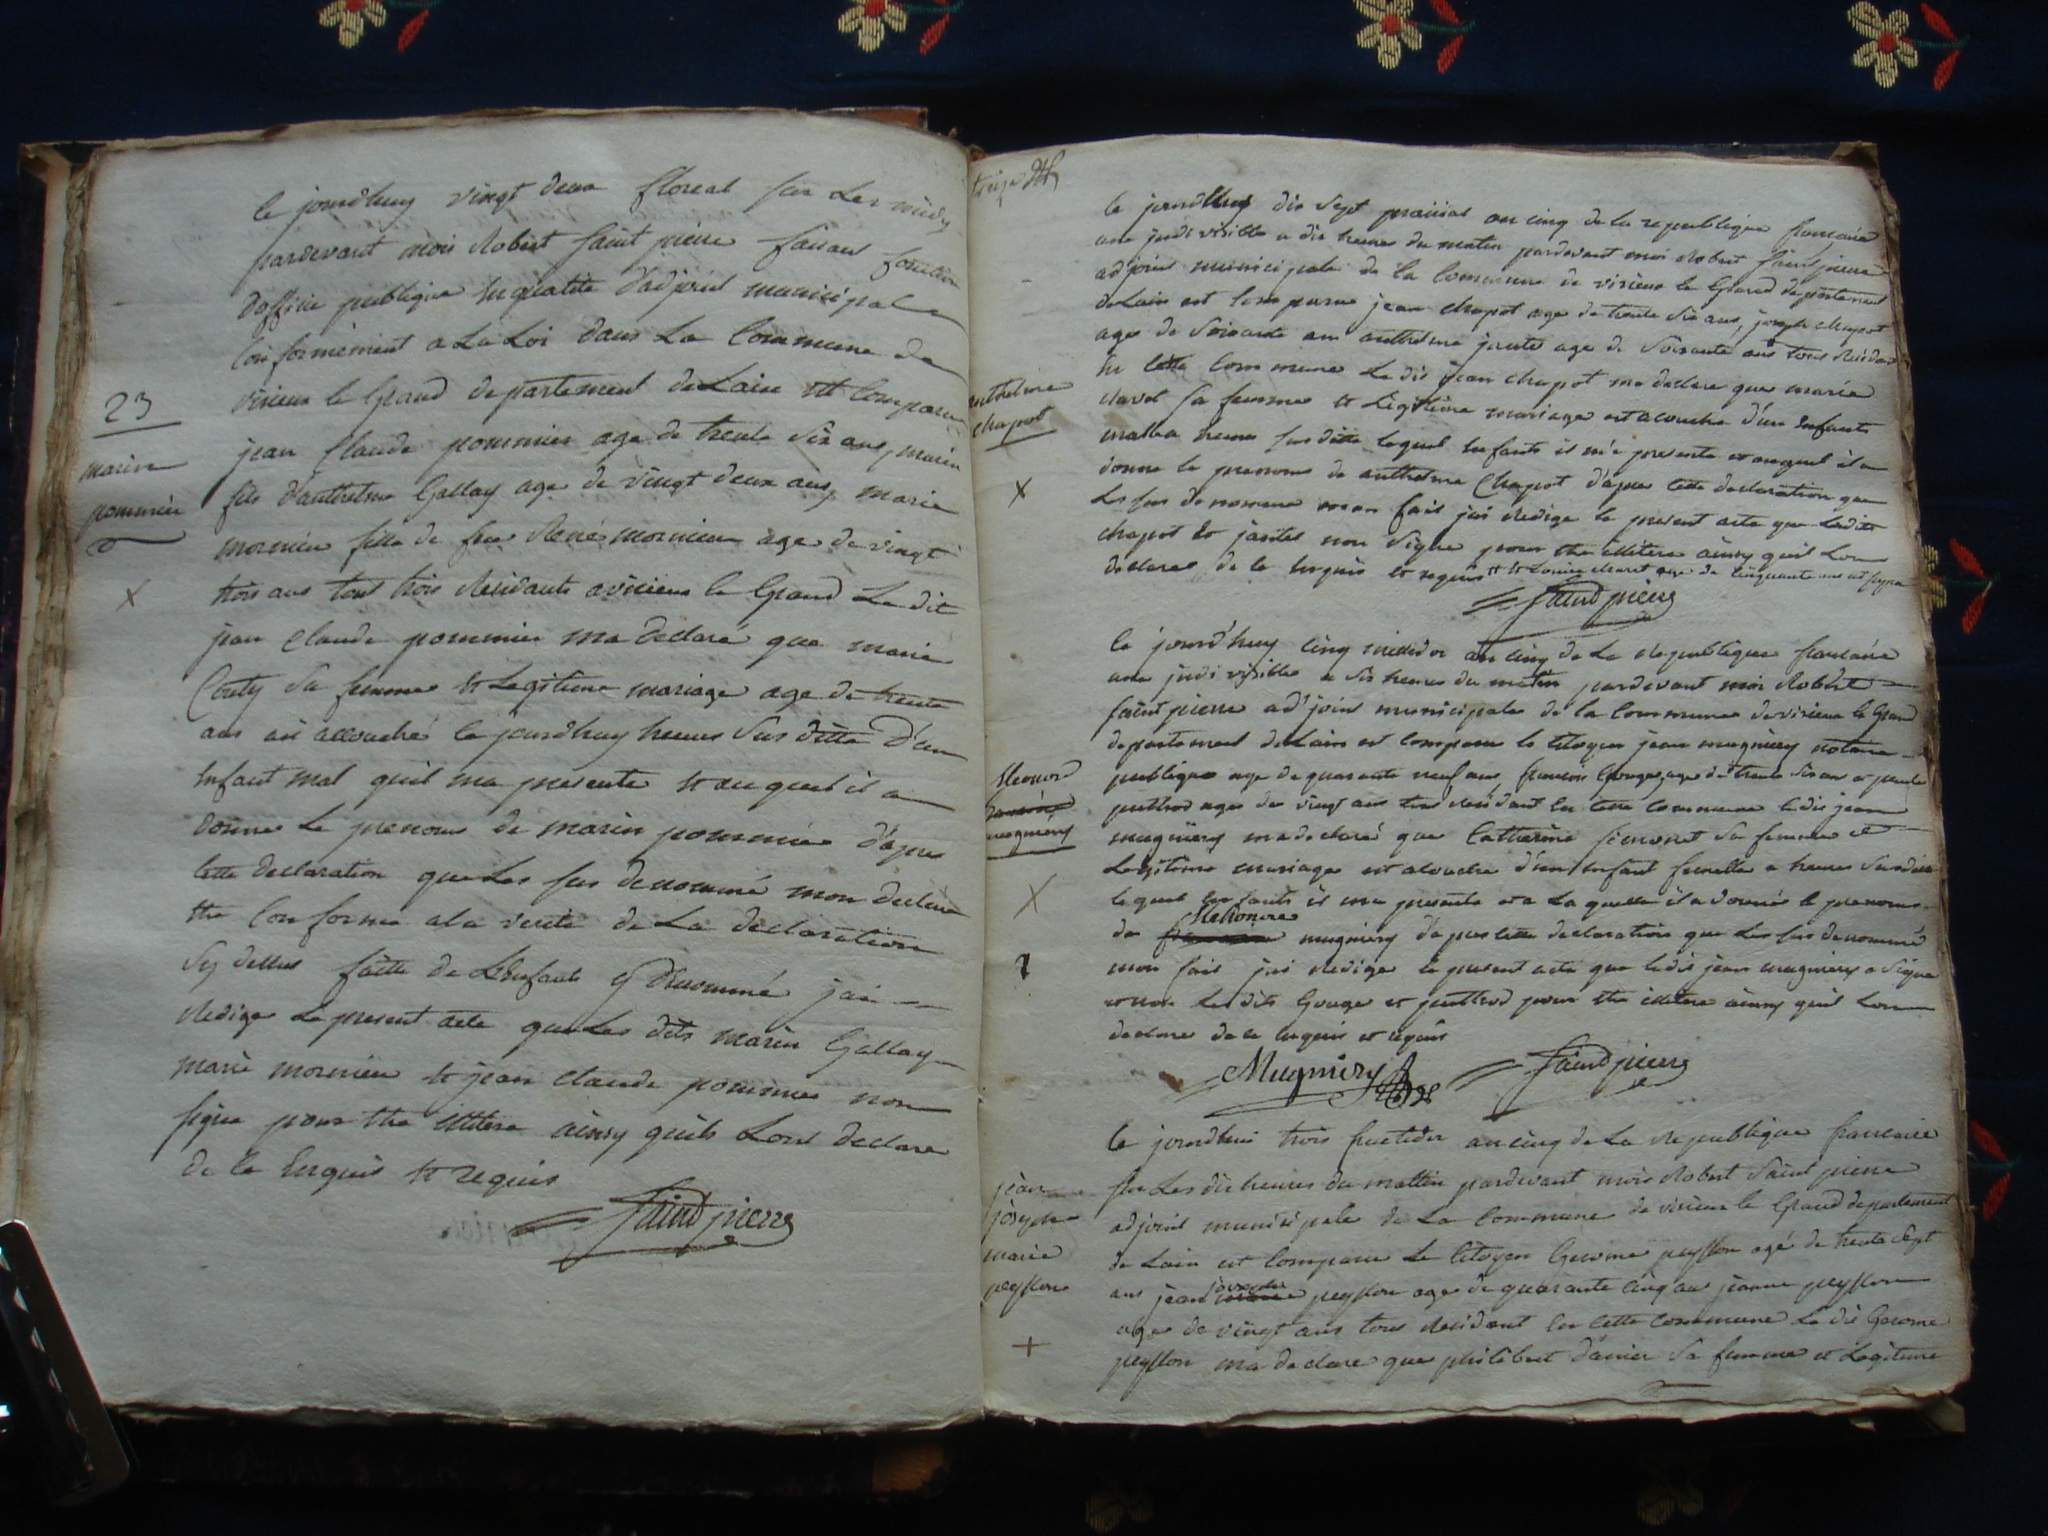 23
marin
pommier
X
le jourdhuy vingt deux floreal sur Les midy
pardevant moi Robert saint pierre faisant fonction
dofficie publique en qualité d'adjoint municipal
Conformement a La Loi dans La Commune de
virieux le Grand departement de Lain est Comparu
jean Claude pommier age de trente six ans, marin
fils d'anthelme Gallay age de vingt deux ans, marie
mornieu fille de feu René mornieu age de vingt
trois ans tous trois Residants a virieux le Grand Le dit
jean Claude pommier ma declaré que marie
sa femme et Legitime mariage age de trente
ans ait accouché le jourdhuy heure sus ditte D'un
Enfant mal quil ma presente et au quel il a
donne Le prenom de marin pommier d'apres
cette declaration que Les sus denommé mon declaré
etre Conforme a la verité de La declaration
sy dessus faitte de L'Enfant denommé jai
Redige Le present acte que Les dits marin Gallay
marie mornieu et jean claude pommier non
signe pour etre illitere ainsy quils Lont declare
de ce Enquis et requis
Saint pierre
treize
anthelme
chapot
X
le jourdhuy dix sept prairial an cinq de la republique francaise
une indivisible a dix heures du matin pardevant moi Robert saint pierre
adjoint municipale de la Commune de virieux le Grand departement
de Lain est Comparu jean chapot age de trente six ans, joseph chapot
age de soixante ans anthelme age de soixante ans tous Residant
en cette Commune Le dit jean chapot ma declare que marie
sa femme et Legitime mariage est acouche d'un Enfant
heure sus ditte lequel Enfant il m'a presente et auquel il a
donne le prenom de anthelme Chapot d'apres cette declaration que
Les sus denommé mon fait jai Redige le present acte que ledit
chapot et non signe pour etre illitere ainsy quil Lon
declare de ce Enquis et requis et age de cinquante
Saint pierre
Eleonor
mugniery
X
le jourd'huy cinq messidor an cinq de La Republique francaise
une indivisible a six heures du matin pardevant moi Robert
saint pierre ad'joint municipale de la Commune de virieux le Grand
departement de Lain est comparu le Citoyen jean mugniery notaire
publique age de quarante neuf ans, francois Gouge age de trente six ans et
age de vingt ans tous Residant en cette Commune le dit jean
mugniery ma declaré que Catherine simonet sa femme et
Legitime mariage est acouche d'un Enfant femelle a heure susditte
lequel Enfants il ma presente et a La quelle il a donné le prenom
Eleonore
de mugniery d'apres cette declaration que Les sus denommé
mon fait jai Redige le present acte que ledit jean mugniery a signe
et non Les dits Gouge et pour etre illitere ainsy quil Lon
declare de ce enquis et requis
Mugniery
Saint pierre
jean
joseph
marie
peysson
+
le jourdhui trois fructidor an cinq de La Republique francaise
sur Les dix heures du mattin pardevant moi Robert Saint pierre
adjoint municipale de La Commune de virieux le Grand departement
de Lain est Comparu Le Citoyen Gerome peysson agé de trente sept
ans jean peysson age de quarante cinq ans jeanne peysson
age de vingt ans tous Residant en cette commune Le dit Gerome
peysson ma declare que philiberte sa femme et Legitime